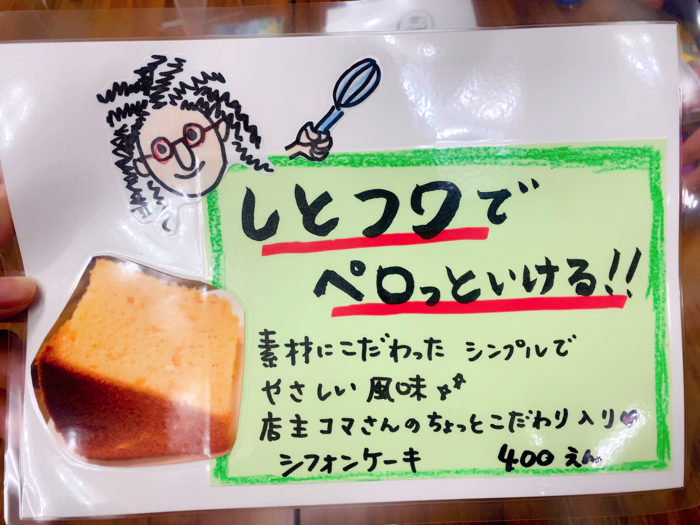 しとフワで
ペロっといける!!
素材にこだわった シンプルで
やさしい風味
店主コマさんのちょっとこだわり入り
シフォンケーキ 400えん